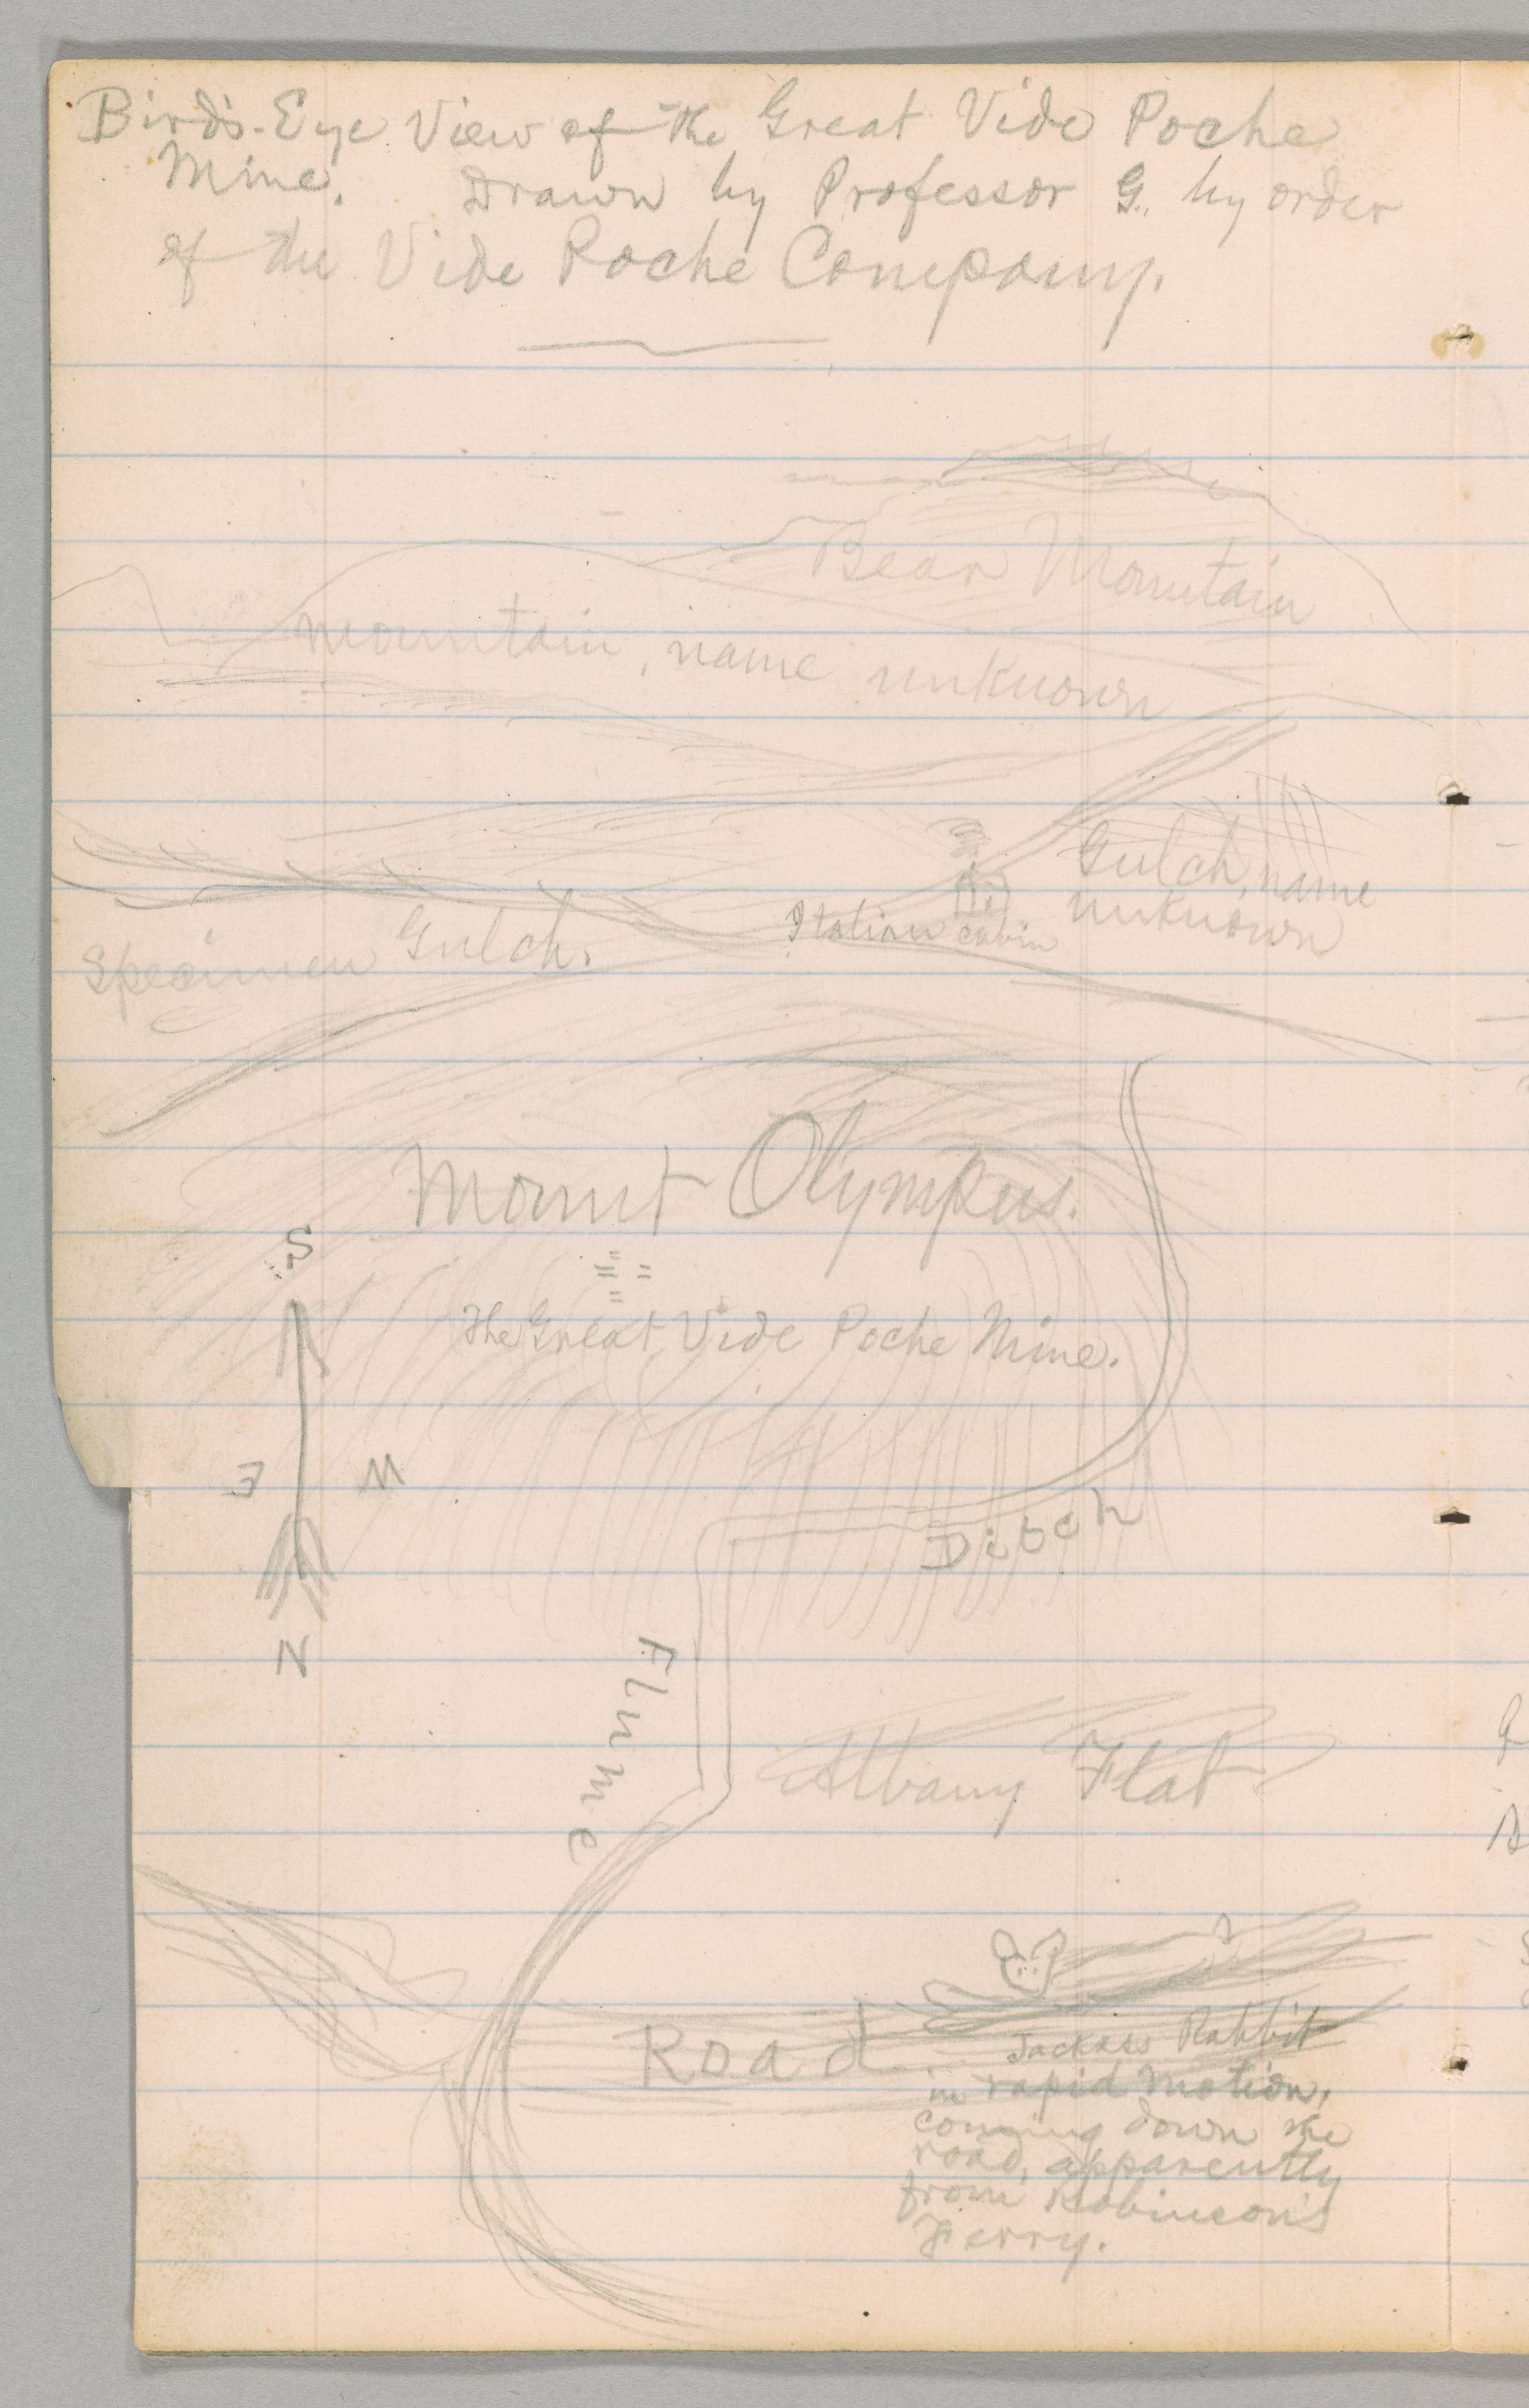 Bird's-Eye View of the Great Vide Poche
Mine. Drawn by Professor G., by order
of the Vide Poche Company.
Bear Mountain
mountain, name unknown
Gulch, name
unknown
Italian cabin
Specimen Gulch.
Mount Olympus.
The Great Vide Poche Mine.
S
E W
N
Ditch
Flume
Albany Flat
Road
Jackass Rabbit
in rapid motion,
coming down the
road, apparently
from Robinson's
Ferry.